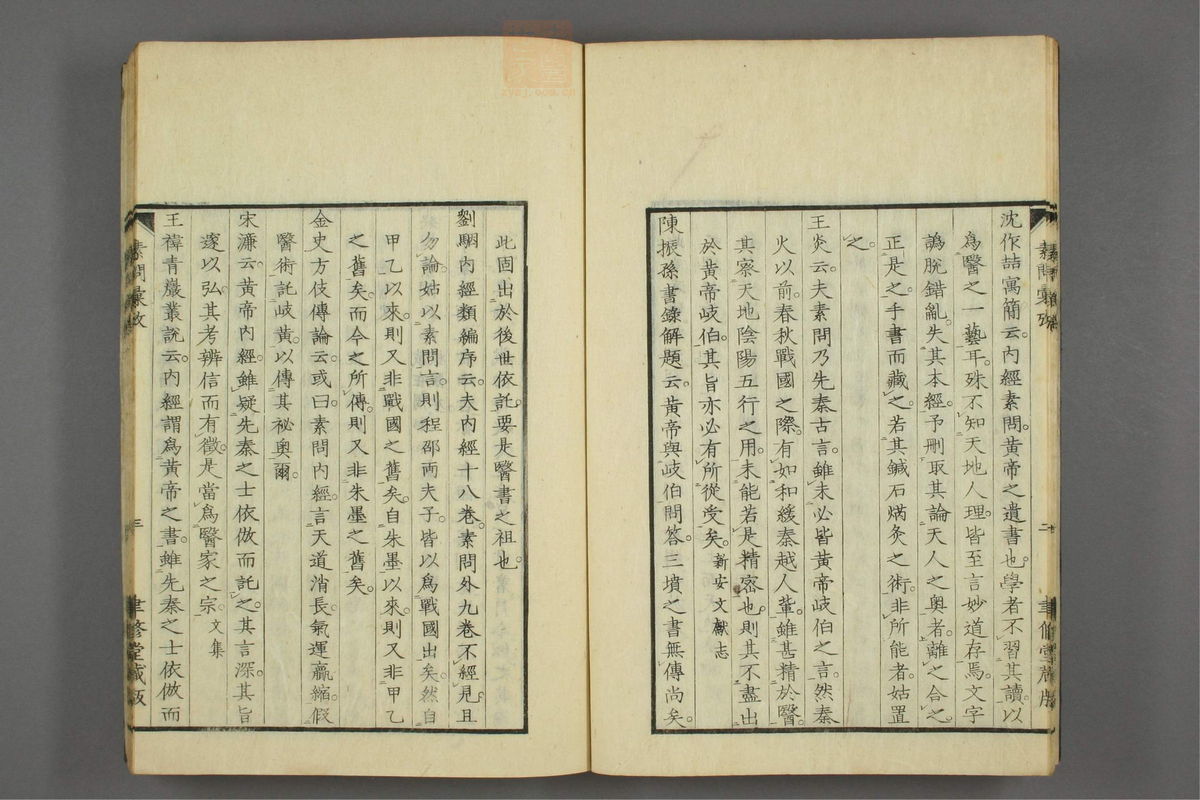 沈作喆寓簡云。內經素問。黃帝之遺書也。學者不習其讀。以
爲醫之一藝耳。殊不知天地人理。皆至言妙道存焉。文字
譌脫錯亂。失其本經。予刪取其論天人之奧者。離之合之。
正是之。手書而藏之。若其鍼石焫灸之術。非所能者。姑置
之。
王炎云。夫素問乃先秦古言。雖未必皆黃帝岐伯之言。然秦
火以前。春秋戰國之際。有如和緩秦越人輩。雖甚精於醫。
其察天地陰陽五行之用。未能若是精密也。則其不盡出
於黃帝岐伯。其旨亦必有所從受矣。新安文獻志
陳振孫書錄解題云。黃帝與岐伯問答。三墳之書無傳尚矣。
此固出於後世依託。要是醫書之祖也。
劉駰內經類編序云。夫內經十八卷。素問外九卷不經見。且
勿論。姑以素問言。則程邵兩夫子。皆以爲戰國出矣。然自
甲乙以來。則又非戰國之舊矣。自朱墨以來。則又非甲乙
之舊矣。而今之所傳。則又非朱墨之舊矣。
金史方伎傳論云。或曰素問內經。言天道消長。氣運贏縮。假
醫術託岐黃。以傳其祕奧爾。
宋濂云。黃帝內經。雖疑先秦之士依倣而託之。其言深。其旨
邃以弘。其考辨信而有徵。是當爲醫家之宗。文集
王褘青巖叢說云。內經謂爲黃帝之書。雖先秦之士依倣而
三
聿修堂藏版